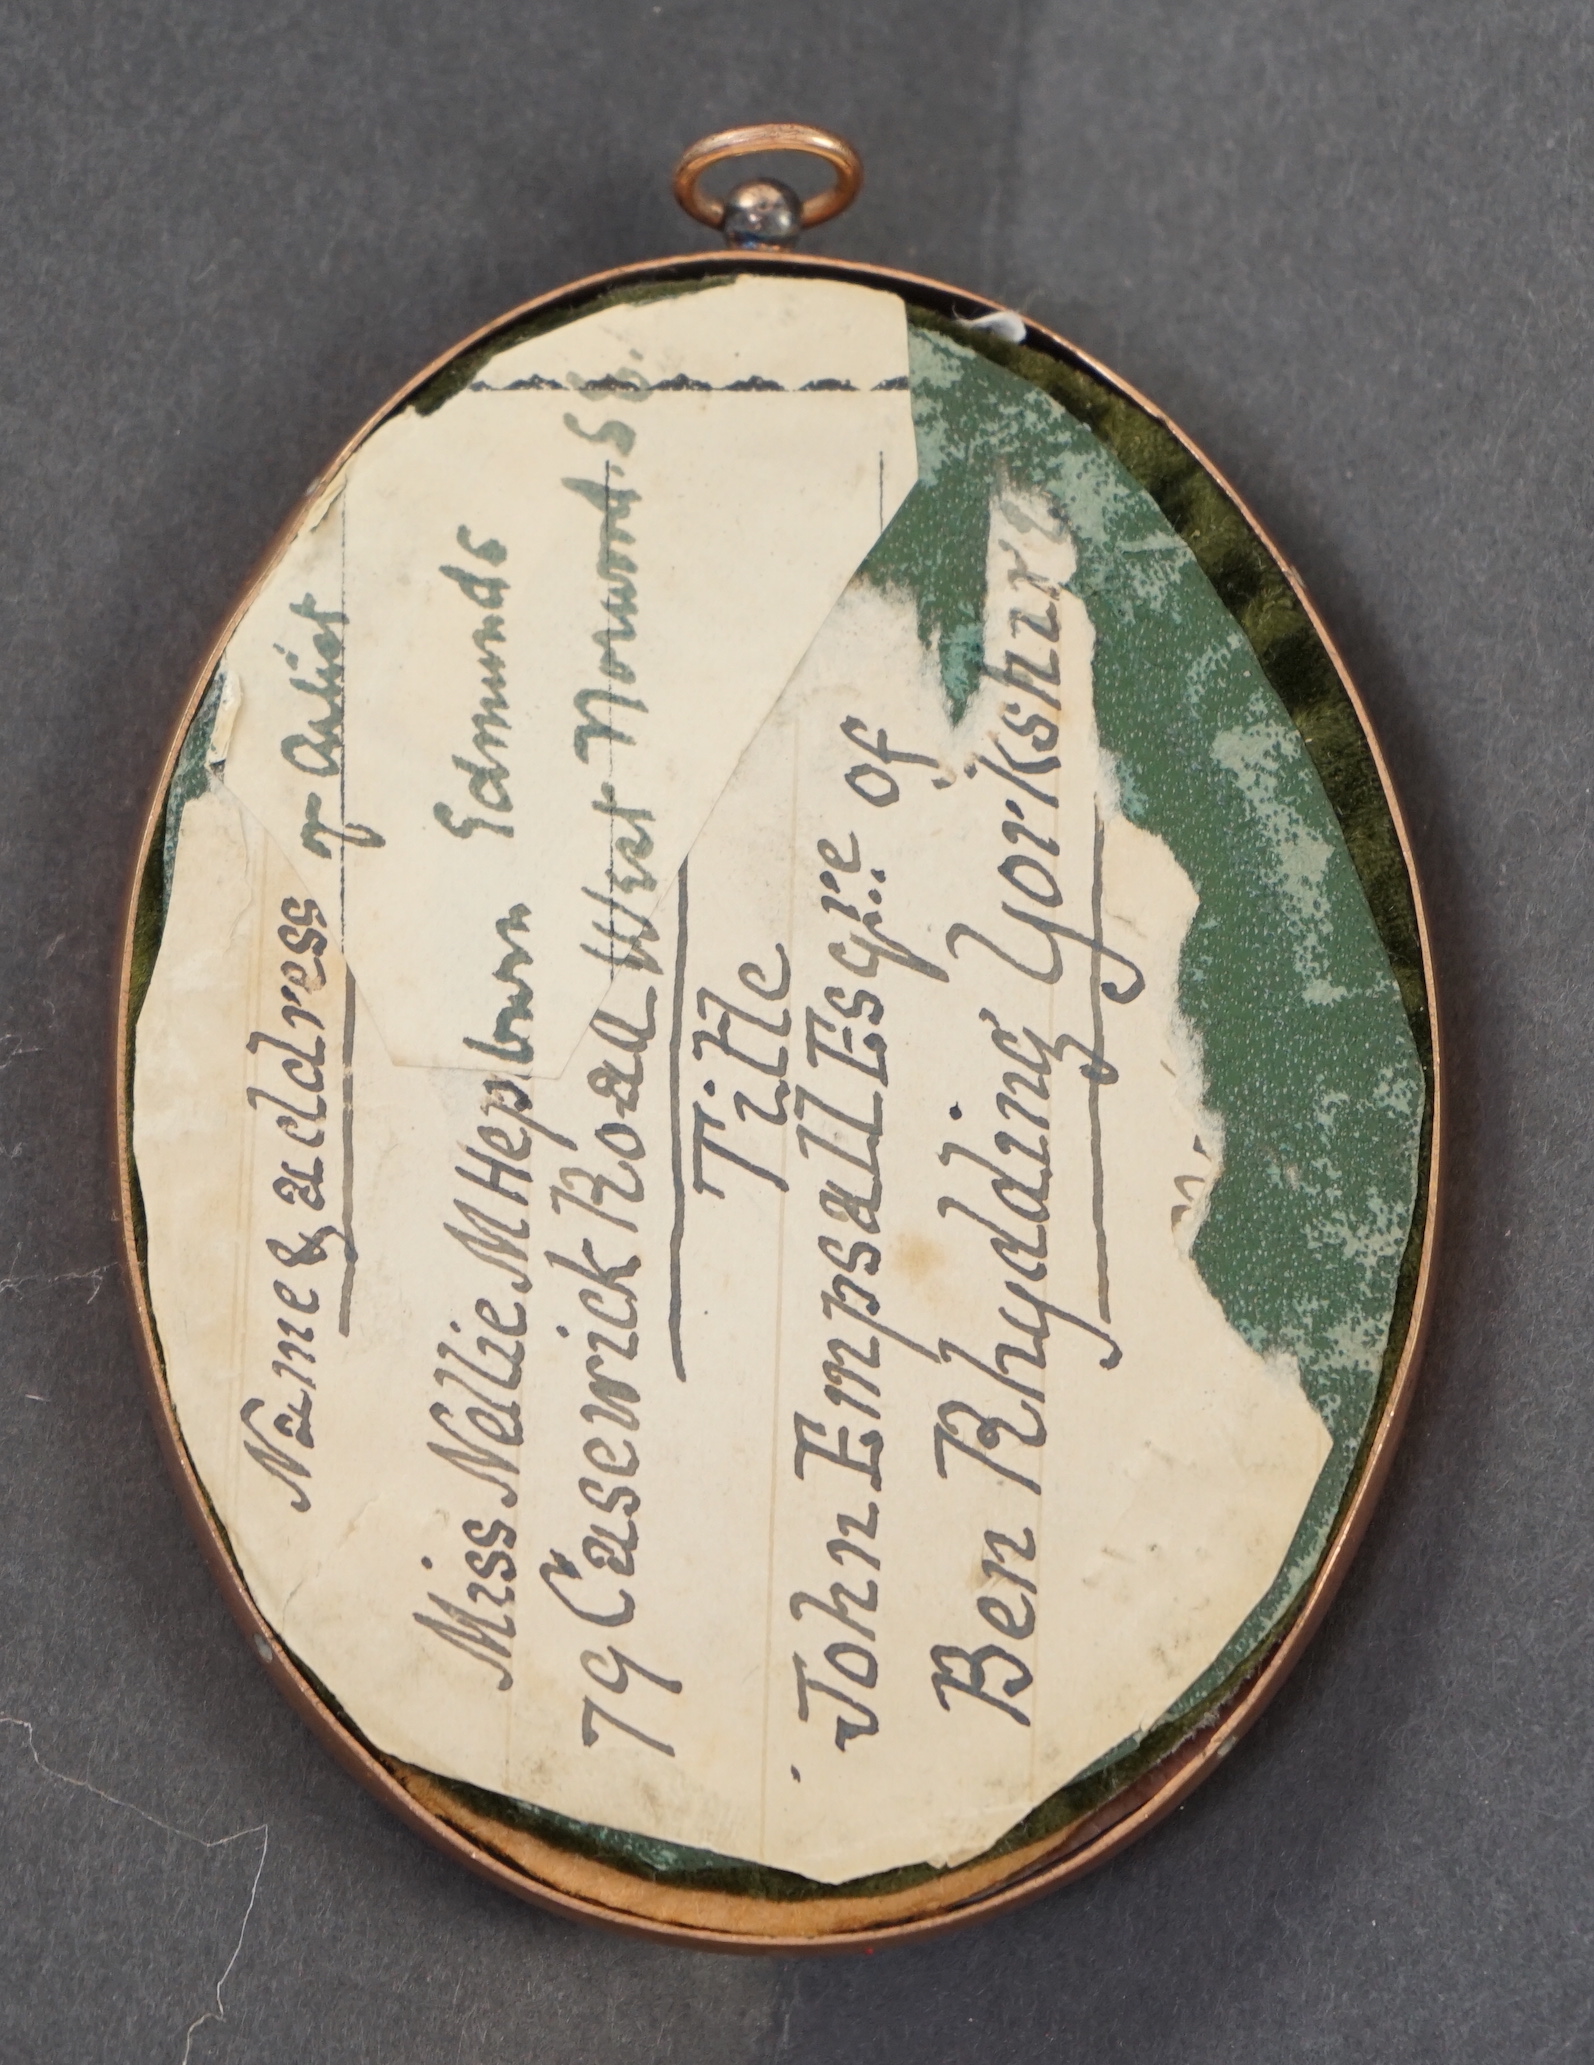 Name & address of Artist
Miss Nellie M Hepburn Edmunds
79 Casewick Road West Norwood. S E.
Title
John Empsall Esqre of
Ben Rhydding Yorkshire